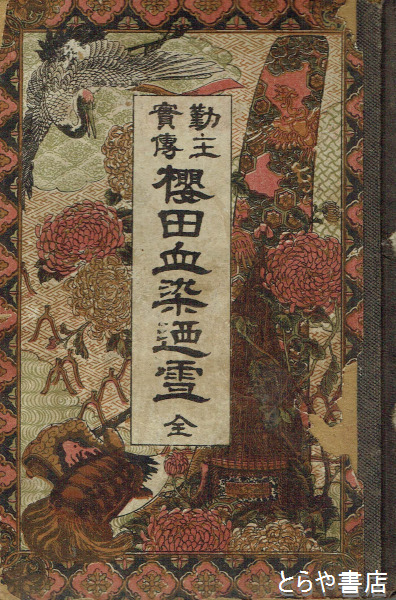 勤王
實傳
櫻田血染廼雪
全
とらや書店